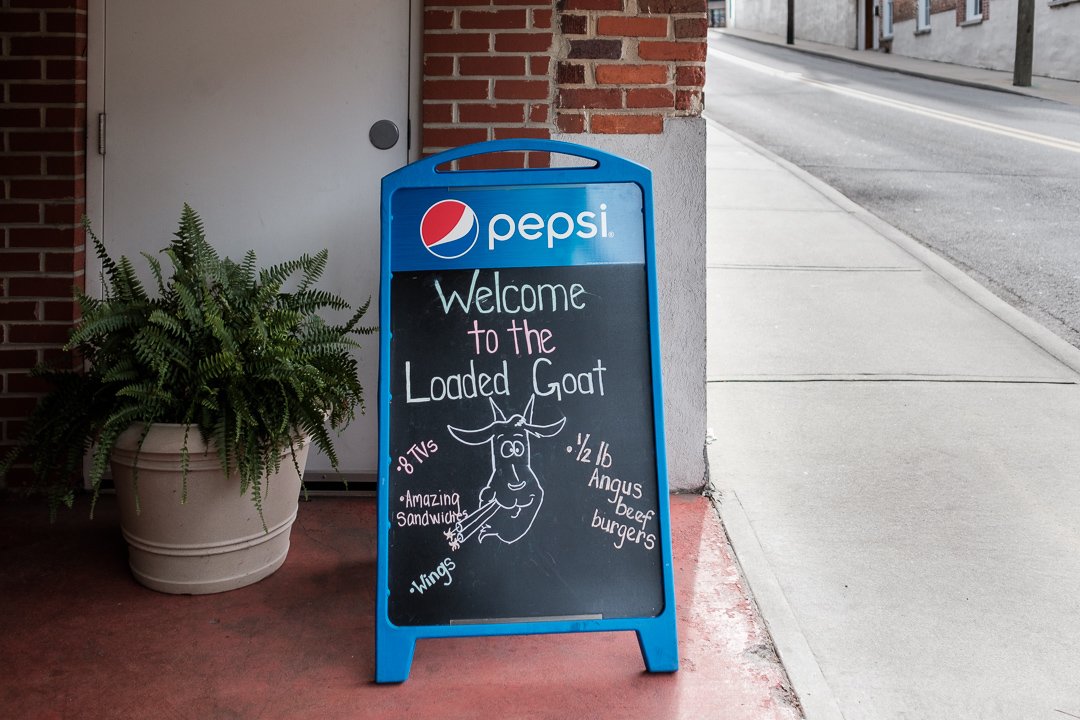 pepsi
Welcome
to the
Loaded Goat
• 8 TVs
• Amazing
Sandwiches
• Wings
• 1/2 lb
Angus
beef
burgers